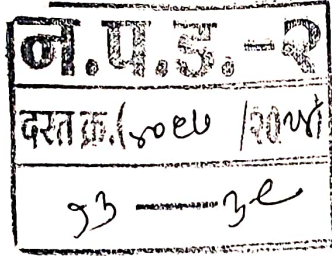 न.प.ड.-२
दस्त क्र.(४०९७ /२०२४)
१३ ------ ३९